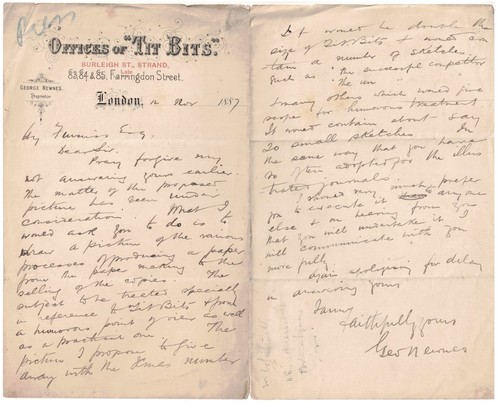 Press
OFFICES OF "TIT BITS."
BURLEIGH ST., STRAND,
Late
83, 84 & 85, Farringdon Street.
GEORGE NEWNES,
Proprietor
London, 2 Nov 1887
Hy Furniss Esq
Dear Sir.
Pray forgive my
not answering yours earlier.
The matter of the proposed
picture has been under
consideration. What I
would ask you to do is to
draw a picture of the various
processes of producing a paper
from the paper making to the
selling of the copies. The
subject to be treated specially
in reference to Tit Bits & from
a humorous point of view as well
as a practical one. The
picture I propose to give
away with the Xmas number
It would be double the
size of Tit Bits & would con-
tain a number of sketches
such as "The successful competitor
"The
& many others which would give
scope for humorous treatment
It would contain about say
20 small sketches. In
the same way that you have
so often adopted for the illus
trated journals.
I should very much prefer
you to execute it than anyone
else & on hearing from you
that you will undertake it I
will communicate with you
more fully.
Again apologising for delay
in answering yours
I am
Faithfully yours
Geo Newnes